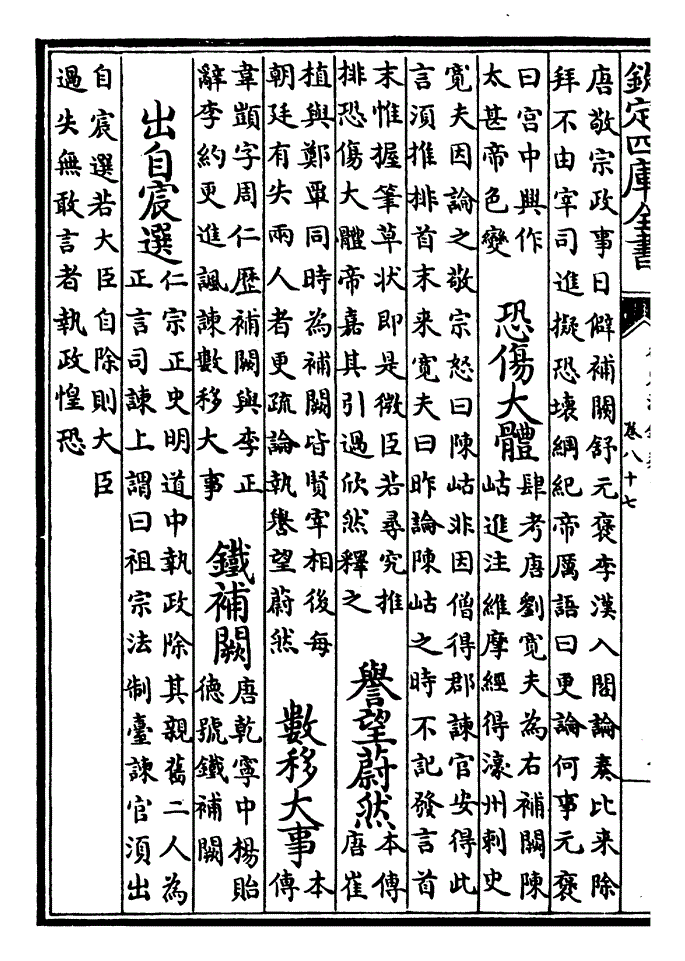 欽定四庫全書
卷八十七
唐敬宗政事日僻補闕舒元褒李漢入閤論奏比来除
拜不由宰司進擬恐壞綱紀帝厲語曰更論何事元褒
曰宫中興作
太甚帝色變
恐傷大體
肆考唐劉寛夫為右補闕陳
岵進注維摩經得濠州刺史
寛夫因論之敬宗怒曰陳岵非因僧得郡諫官安得此
言須推排首末来寛夫曰昨論陳岵之時不記發言首
末惟握筆草状即是微臣若尋究推
排恐傷大體帝嘉其引過欣然釋之
譽望蔚然
本傳
唐崔
植與鄭覃同時為補闕皆賢宰相後每
朝廷有失兩人者更疏論執譽望蔚然
數移大事
本
傳
韋顗字周仁歴補闕與李正
辭李約更進諷諫數移大事
鐵補闕
唐乾寧中楊貽
德號鐵補闕
出自宸選
仁宗正史明道中執政除其親舊二人為
正言司諫上謂曰祖宗法制臺諫官須出
自宸選若大臣自除則大臣
過失無敢言者執政惶恐